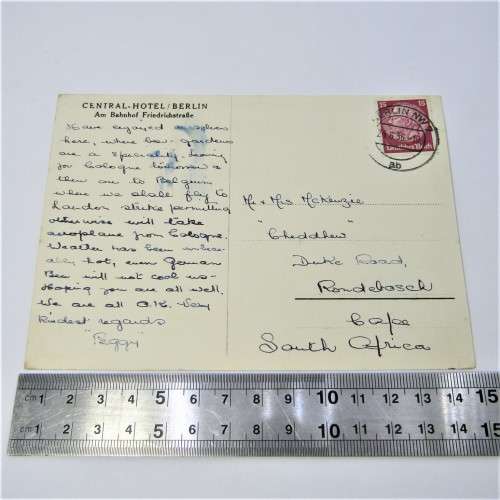 CENTRAL-HOTEL / BERLIN
Am Bahnhof Friedrichstraße
Have enjoyed ourselves
here, where beer-gardens
are a speciality. Leaving
for Cologne tomorrow &
then on to Belgium
when we shall fly to
London strike permitting
otherwise will take
aeroplane from Cologne.
Weather has been unbear-
ably hot, even German
Beer will not cool us-
Hoping you are all well.
We are all O.K. Very
kindest regards
"Peggy"
15 15
Deutsches Reich
BERLIN NW
ab
Mr & Mrs McKenzie
" Cheddhew "
Duke Road,
Rondebosch
Cape
South Africa
cm 1 2 3 4 5 6 7 8 9 10 11 12 13 14 15
cm 1 2 3 4 5 6 7 8 9 10 11 12 13 14 15